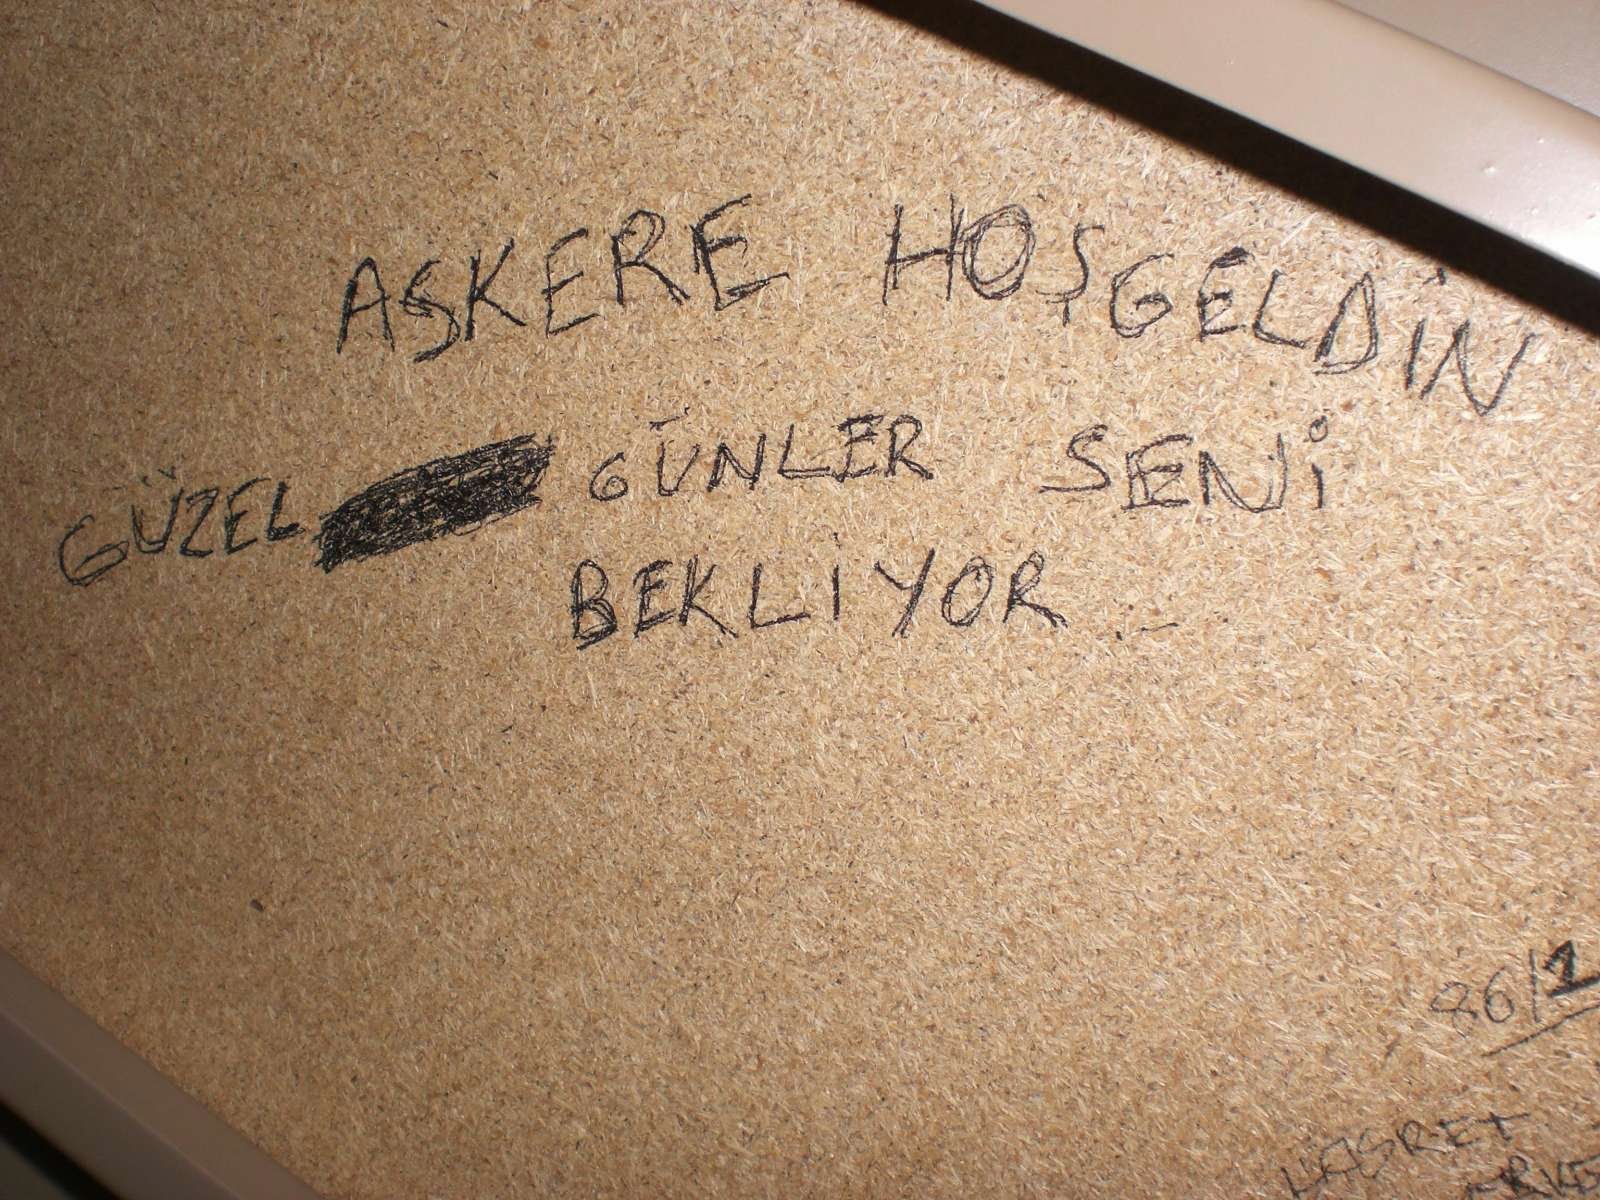 ASKERE HOŞGELDİN
GÜZEL GÜNLER SENİ
BEKLİYOR
86/1
HASRET